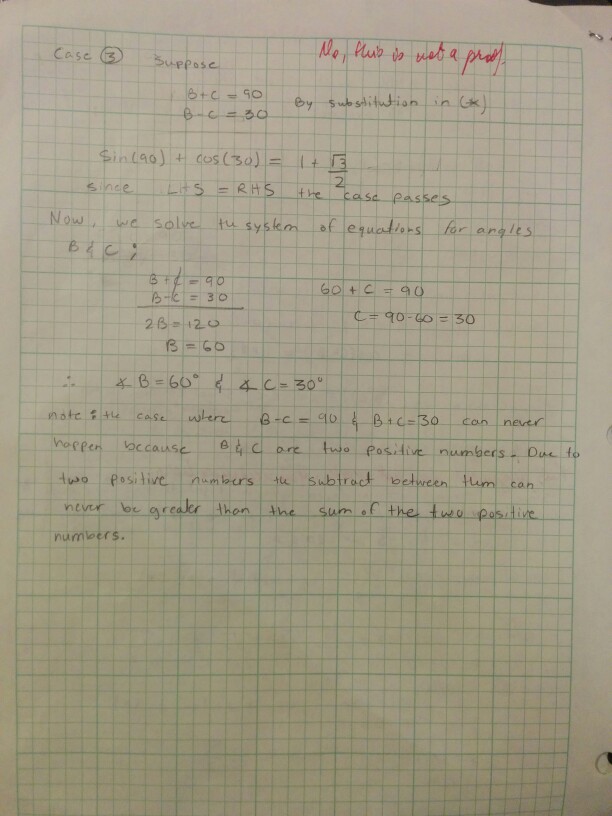 Case ③ Suppose
No, this is not a proof.
B+C = 90
B-C = 30
By substitution in (*)
Sin(90) + cos(30) = 1 + √3/2
since LHS = RHS the case passes
Now, we solve the system of equations for angles
B & C ;
B+C = 90
B-C = 30
2B = 120
B = 60
60 + C = 90
C = 90-60 = 30
∴ ∡ B = 60° & ∡ C = 30°
note : the case where B-C = 90 & B+C=30 can never
happen because B & C are two positive numbers. Due to
two positive numbers the subtract between them can
never be greater than the sum of the two positive
numbers.